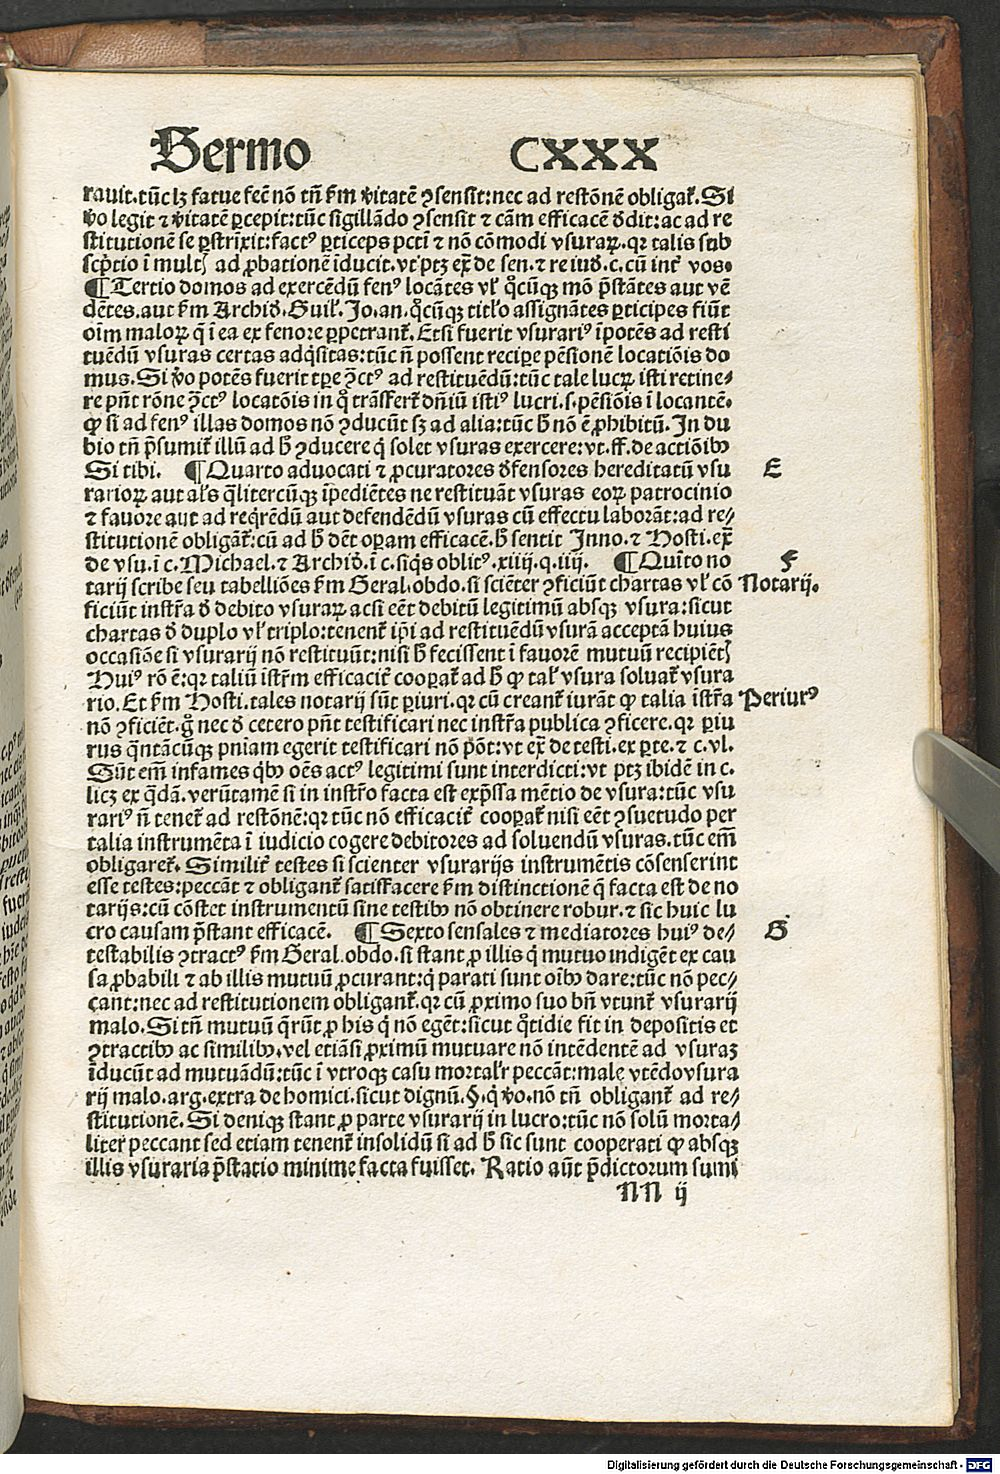 Sermo CXXX
rauit.tūc lꝫ fatue fec̄ nō tn̄ ẜm ỽitatē ꝯsensit:nec ad restōnē obligat᷑.Si
ỽo legit ⁊ ỽitatē ꝑcepit:tūc sigillādo ꝯsensit ⁊ cām efficacē ꝺdit:ac ad re
stitutionē se ꝑstrixit:factꝰ ꝑticeps pctī ⁊ nō cōmodi vsuraꝝ.qꝛ talis sub
scp̄tio ī multꝭ ad ꝓbationē īducit.vt ptꝫ ex̄ de sen.⁊ re iuꝺ.c.cū int̄ vos.
¶Tertio domos ad exercēdū fenꝰ locātes vl̓ qͦcūqꝫ mō p̄stātes aut vē
dētes.aut ẜm Archiꝺ.Guil̓.Jo.an.qͦcūqꝫ titl̓o assignātes ꝑticipes fiūt
oīm maloꝝ q̄ ī ea ex fenore ꝑpetrant᷑.Etsi fuerit vsurariꝰ īpotēs ad resti
tuēdū vsuras certas adq̇sitas:tūc n̄ possent reciꝑe pēsionē locatiōis do
mus.Si ỽo potēs fuerit tꝑe ꝯctꝰ ad restituēdū:tūc tale lucꝝ isti retine⸗
re pn̄t rōne ꝯctꝰ locatōis in qͦ trāsfert᷑ dn̄iū istiꝰ lucri.s.pēsiōis ī locantē.
ꝙ si ad fenꝰ illas domos nō ꝯducūt sꝫ ad alia:tūc ħ nō ē ꝓhibitū.In du
bio tn̄ p̄sumit᷑ illū ad ħ ꝯducere q̇ solet vsuras exercere:vt.ff.de actiōibꝰ
Si tibi. ¶Quarto aduocati ⁊ ꝓcuratores ꝺfensores hereditatū vsu E
rarioꝝ aut al̓s q̄litercūqꝫ īpediētes ne restituāt vsuras eoꝝ patrocinio
⁊ fauore aut ad req̇rēdū aut defendēdū vsuras cū effectu laborāt:ad re⸗
stitutionē obligāt᷑:cū ad ħ dēt oꝑam efficacē.ħ sentit Inno.⁊ Hosti.ex̄
de vsu.ī c.Michael.⁊ Archiꝺ.ī c.siq̇s oblitꝰ.xiiij.q.iiij. ¶Quīto no F
tarij scribe seu tabelliōes ẜm Geral.obdo.si sciēter ꝯficiūt chartas vl̓ cō Notarij.
ficiūt instr̄a ꝺ debito vsuraꝝ acsi eēt debitū legitimū absqꝫ vsura:sicut
chartas ꝺ duplo vl̓ triplo:tenent᷑ ip̄i ad restituēdū vsurā acceptā huius
occasiōe si vsurarij nō restituūt:nisi ħ fecissent ī fauorē mutuū recipiētꝭ
Huiꝰ rō ē:qꝛ taliū istr̄m efficacit᷑ cooꝑat᷑ ad ħ ꝙ tal̓ vsura soluat᷑ vsura
rio.Et ẜm Hosti.tales notarij sūt ꝑiuri.qꝛ cū creant᷑ iurāt ꝙ talia istr̄a Periurꝰ
nō ꝯficiēt.g̊ nec ꝺ cetero pn̄t testificari nec instr̄a publica ꝯficere.qꝛ ꝑiu
rus q̄ntācūqꝫ pn̄iam egerit testificari nō pōt:vt ex̄ de testi.ex ꝑte.⁊ c.vl.
Sūt em̄ infames qͥbꝰ oēs actꝰ legitimi sunt interdicti:vt ptꝫ ibidē in c.
licꝫ ex q̄dā.verūtamē si in instr̄o facta est exp̄ssa mētio de vsura:tūc vsu
rariꝰ n̄ tenet᷑ ad restōnē:qꝛ tūc nō efficacit᷑ cooꝑat᷑ nisi eēt ꝯsuetudo per
talia instrumēta ī iudicio cogere debitores ad soluendū vsuras.tūc em̄
obligaret᷑.Similit᷑ testes si scienter vsurarijs instrumētis cōsenserint
esse testes:peccāt ⁊ obligant᷑ satisfacere ẜm distinctionē q̄ facta est de no
tarijs:cū cōstet instrumentū sine testibꝰ nō obtinere robur.⁊ sic huic lu
cro causam p̄stant efficacē. ¶Sexto sensales ⁊ mediatores huiꝰ de⸗ G
testabilis ꝯtractꝰ ẜm Geral.obdo.si stant ꝓ illis q̇ mutuo indigēt ex cau
sa ꝓbabili ⁊ ab illis mutuū ꝓcurant:q̇ parati sunt oībꝰ dare:tūc nō pec⸗
cant:nec ad restitutionem obligant᷑.qꝛ cū ꝓximo suo bn̄ vtunt᷑ vsurarij
malo.Si tn̄ mutuū q̄rūt ꝓ his q̇ nō egēt:sicut qͦtidie fit in depositis et
ꝯtractibꝰ ac similibꝰ.vel etiāsi ꝓximū mutuare nō intēdentē ad vsuraꝫ
īducūt ad mutuādū:tūc ī vtroqꝫ casu mortal̓r peccāt:male vtēdo vsura
rij malo.arg.extra de homici.sicut dignū.§.q̇ ỽo.nō tn̄ obligant᷑ ad re⸗
stitutionē.Si deniqꝫ stant ꝓ parte vsurarij in lucro:tūc nō solū morta⸗
liter peccant sed etiam tenent᷑ insolidū si ad ħ sic sunt cooperati ꝙ absqꝫ
illis vsuraria p̄statio minime facta fuisset. Ratio aūt p̄dictorum sumi
NN ij
Digitalisierung gefördert durch die Deutsche Forschungsgemeinschaft - DFG